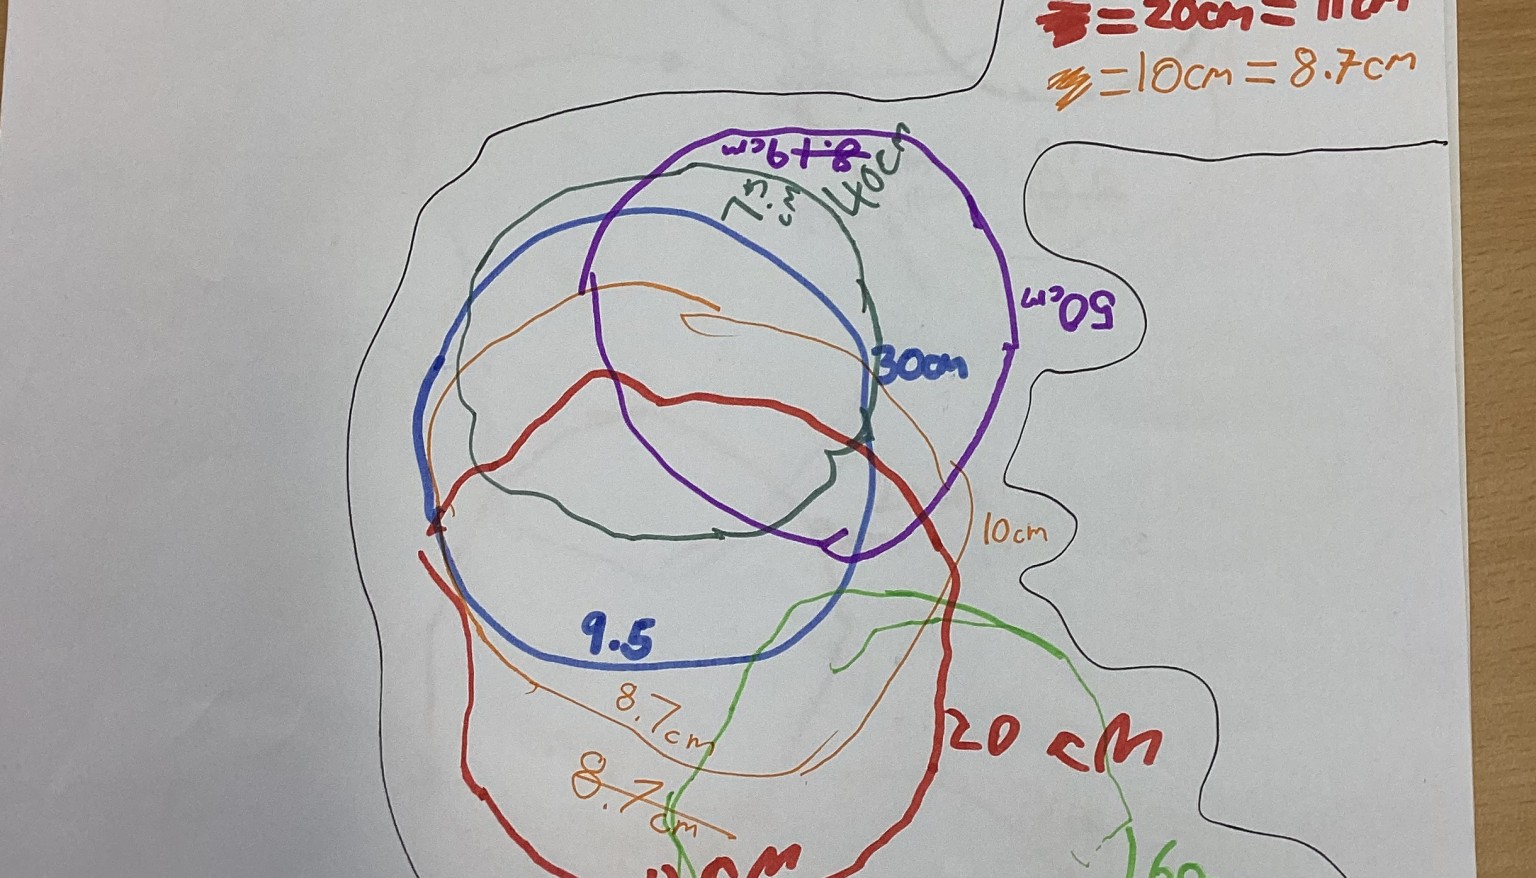 = 20cm = 11cm
= 10cm = 8.7cm
9cm
40cm
7.5cm
50cm
30cm
10cm
9.5
8.7cm
20 cm
8.7cm
60